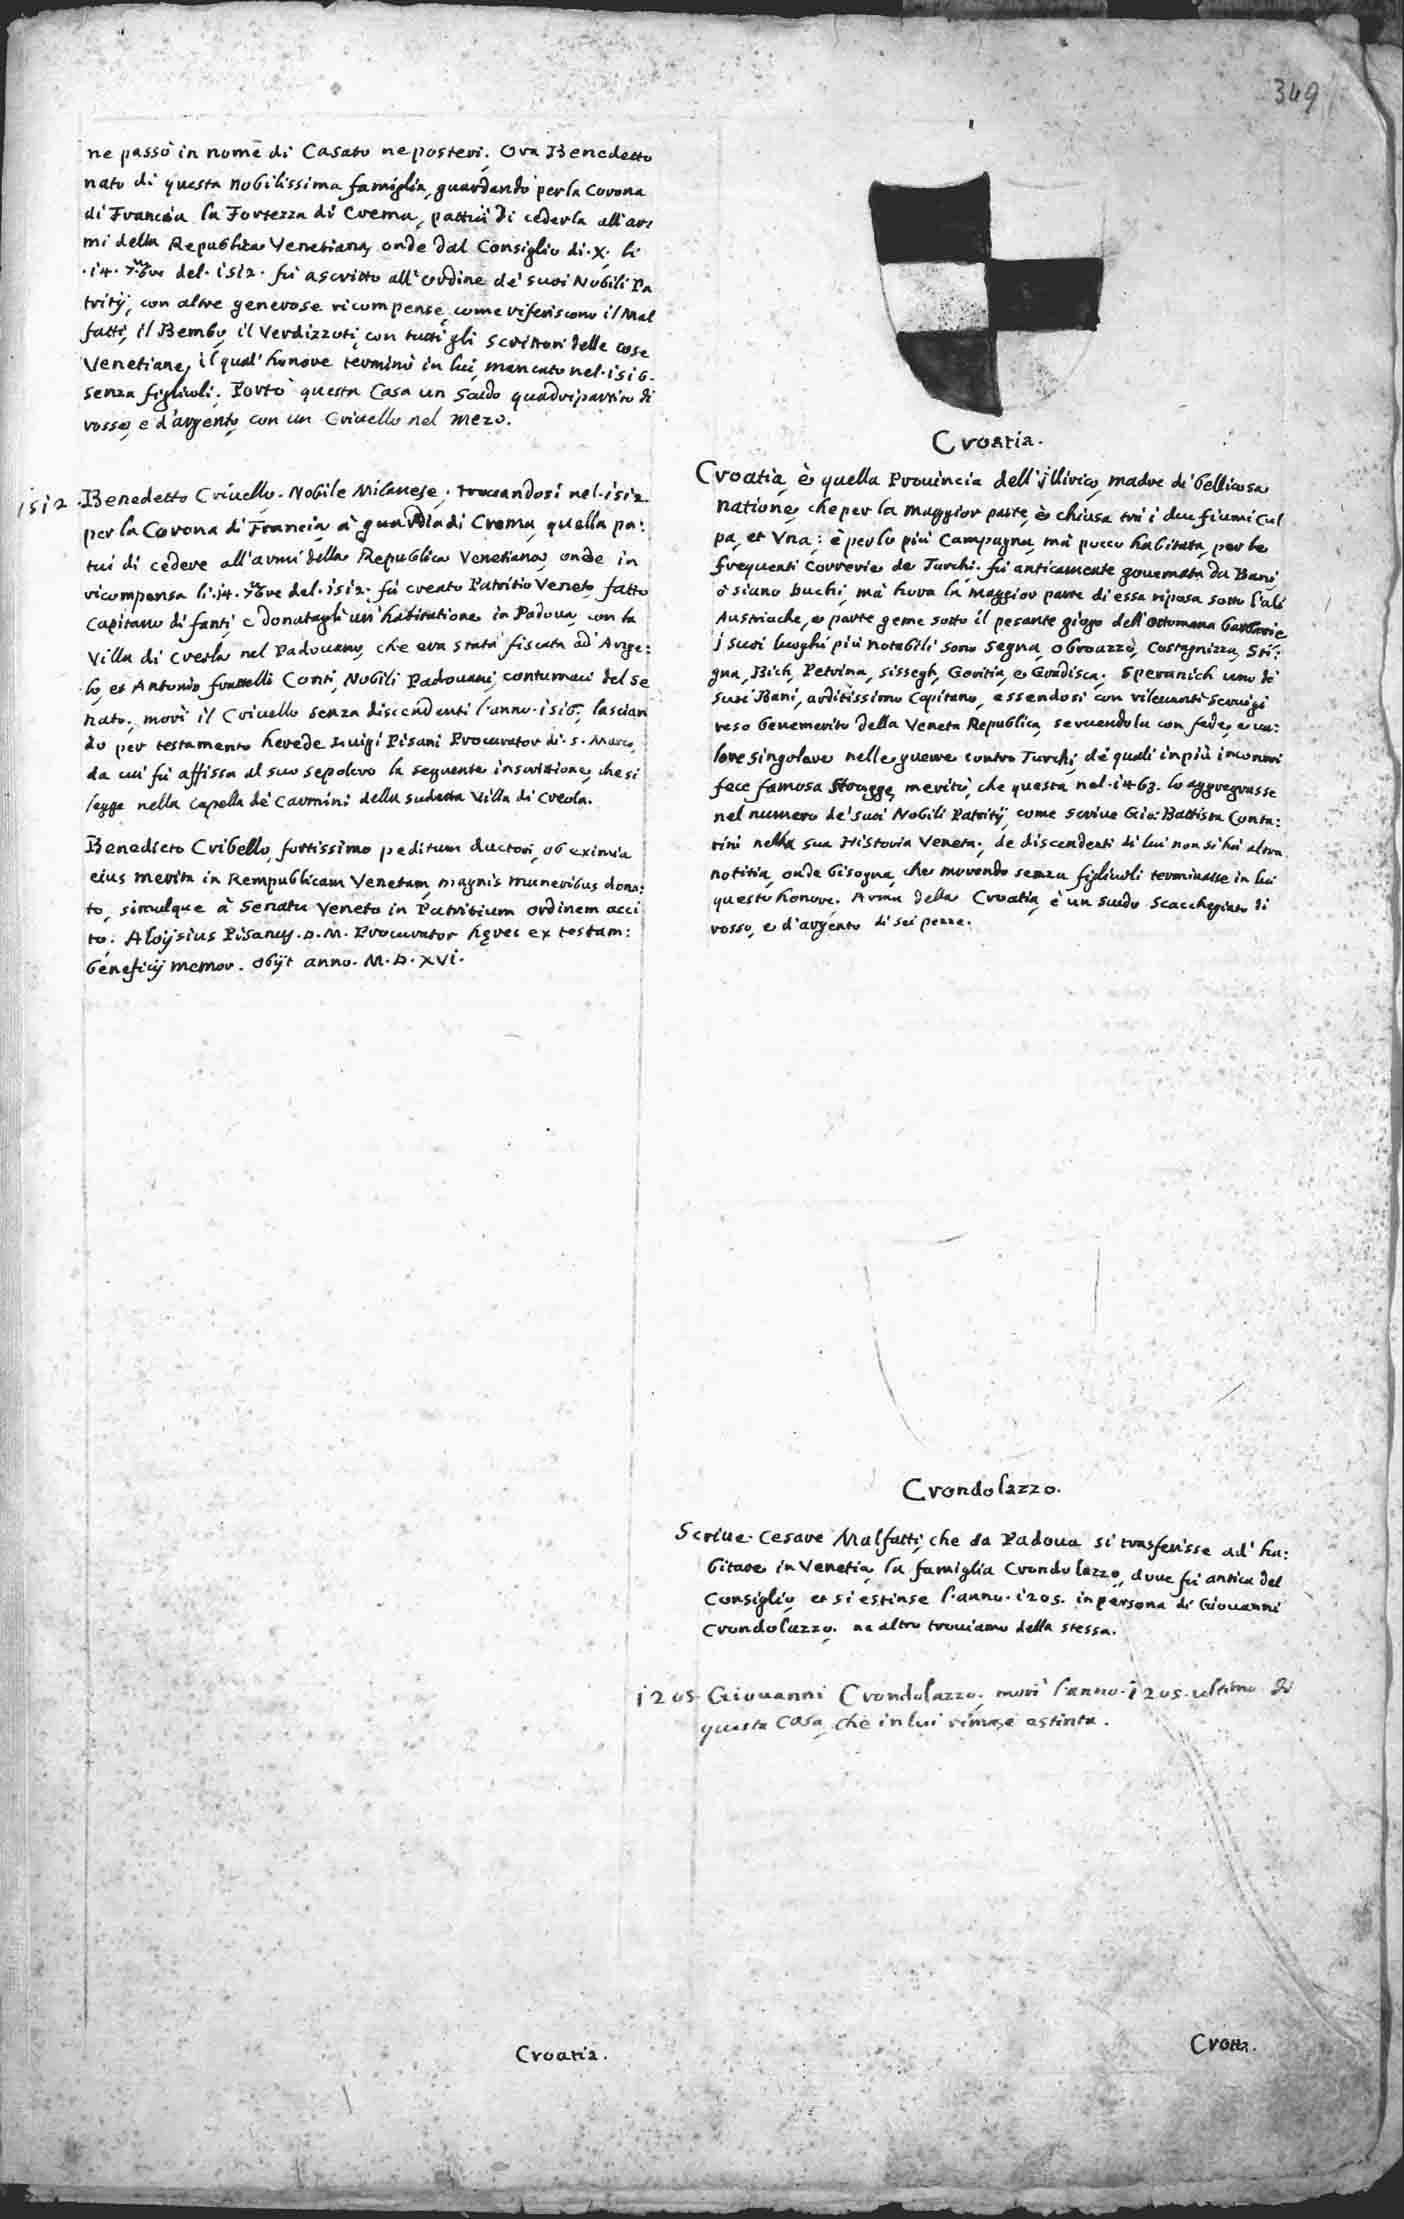 349
ne passò in nome di Casato ne posteri. Ora Benedetto
nato di questa nobilissima famiglia, guardando per la Corona
di Francia la Fortezza di Crema, pattuì di cederla all'ar:
mi della Republica Venetiana, onde dal Consiglio di .X. li
.14. 7.bre del .1512. fù ascritto all'ordine de suoi Nobili Pa
tritij, con altre generose ricompense, come riferiscono il Mal
fatti, il Bembo, il Verdizzoti, con tutti gli scrittori delle cose
Venetiane, il qual' honore terminò in lui, mancato nel .1516.
senza figliuoli. Portò questa Casa un Scudo quadripartito di
rosso, e d'argento, con un Criuello nel mezo.
1512. Benedetto Criuello. Nobile Milanese, trouandosi nel .1512.
per la Corona di Francia à guardia di Crema, quella pa:
tuì di cedere all'armi della Republica Venetiana, onde in
ricompensa li .14. 7bre del .1512. fù creato Patritio Veneto, fatto
Capitano di fanti, e donatagli un' habitatione in Padoua, con la
Villa di Creola nel Padouano, che era stata fiscata ad' Ange:
lo, et Antonio fratelli Conti, Nobili Padouani, contumaci del Se
nato. morì il Criuello senza discendenti l'anno .1516. lascian
do per testamento herede Luigi Pisani Procurator di .S. Marco,
da cui fù affissa al suo sepolcro la seguente inscrittione, che si
legge nella Capella de Carmini della sudetta Villa di Creola.
Benedicto Cribello, fortissimo peditum ductori, ob eximia
eius merita in Rempublicam Venetam, magnis muneribus dona:
to, simulque à Senatu Veneto in Patritium ordinem acci
to. Aloijsius Pisanus .D.M. Procurator hęres ex testam:
beneficij memor. Obijt anno. M.D.XVI.
Croatia.
Croatia.
Croatia, è quella Prouincia dell'jllirico, madre di bellicosa
natione, che per la maggior parte, è chiusa trà i due fiumi Cul
pa, et Vna: è per lo più Campagna, mà pocco habitata, per le
frequenti Correrie de Turchi. fù anticamente gouernata da Bani,
ò siano Duchi, mà hora la maggior parte di essa riposa sotto l'ali
Austriache, e parte geme sotto il pesante giogo dell'Ottomana barbarie
j suoi luoghi più notabili sono Segna, Obroazzo, Castagnizza, Sti:
gna, Bich, Petrina, Sissegh, Goritia, e Gradisca. Speranich uno de
suoi Bani, arditissimo Capitano, essendosi con rileuanti seruigi
reso benemerito della Veneta Republica, seruendola con fede, e ua:
lore singolare nelle guerre contro Turchi, de quali in più incontri
fece famosa Stragge, meritò, che questa nel .1463. lo aggregasse
nel numero de' suoi Nobili Patritij, come scriue Gio: Battista Conta:
rini nella sua Historia Veneta, de discendenti di lui non si hà altra
notitia, onde bisogna, che morendo senza figliuoli terminasse in lui
questo honore. Arma della Croatia, è un scudo scacchegiato di
rosso, e d'argento di sei pezze.
Crondolazzo.
Scriue. Cesare Malfatti, che da Padoua si trasferisse ad' ha:
bitare in Venetia, la famiglia Crondolazzo, doue fù antica del
Consiglio, et si estinse l'anno .1205. in persona di Giouanni
Crondolazzo. ne altro trouiamo della stessa.
1205. Giouanni Crondolazzo, morì l'anno .1205. ultimo di
questa Casa, che in lui rimase estinta.
Crotta.